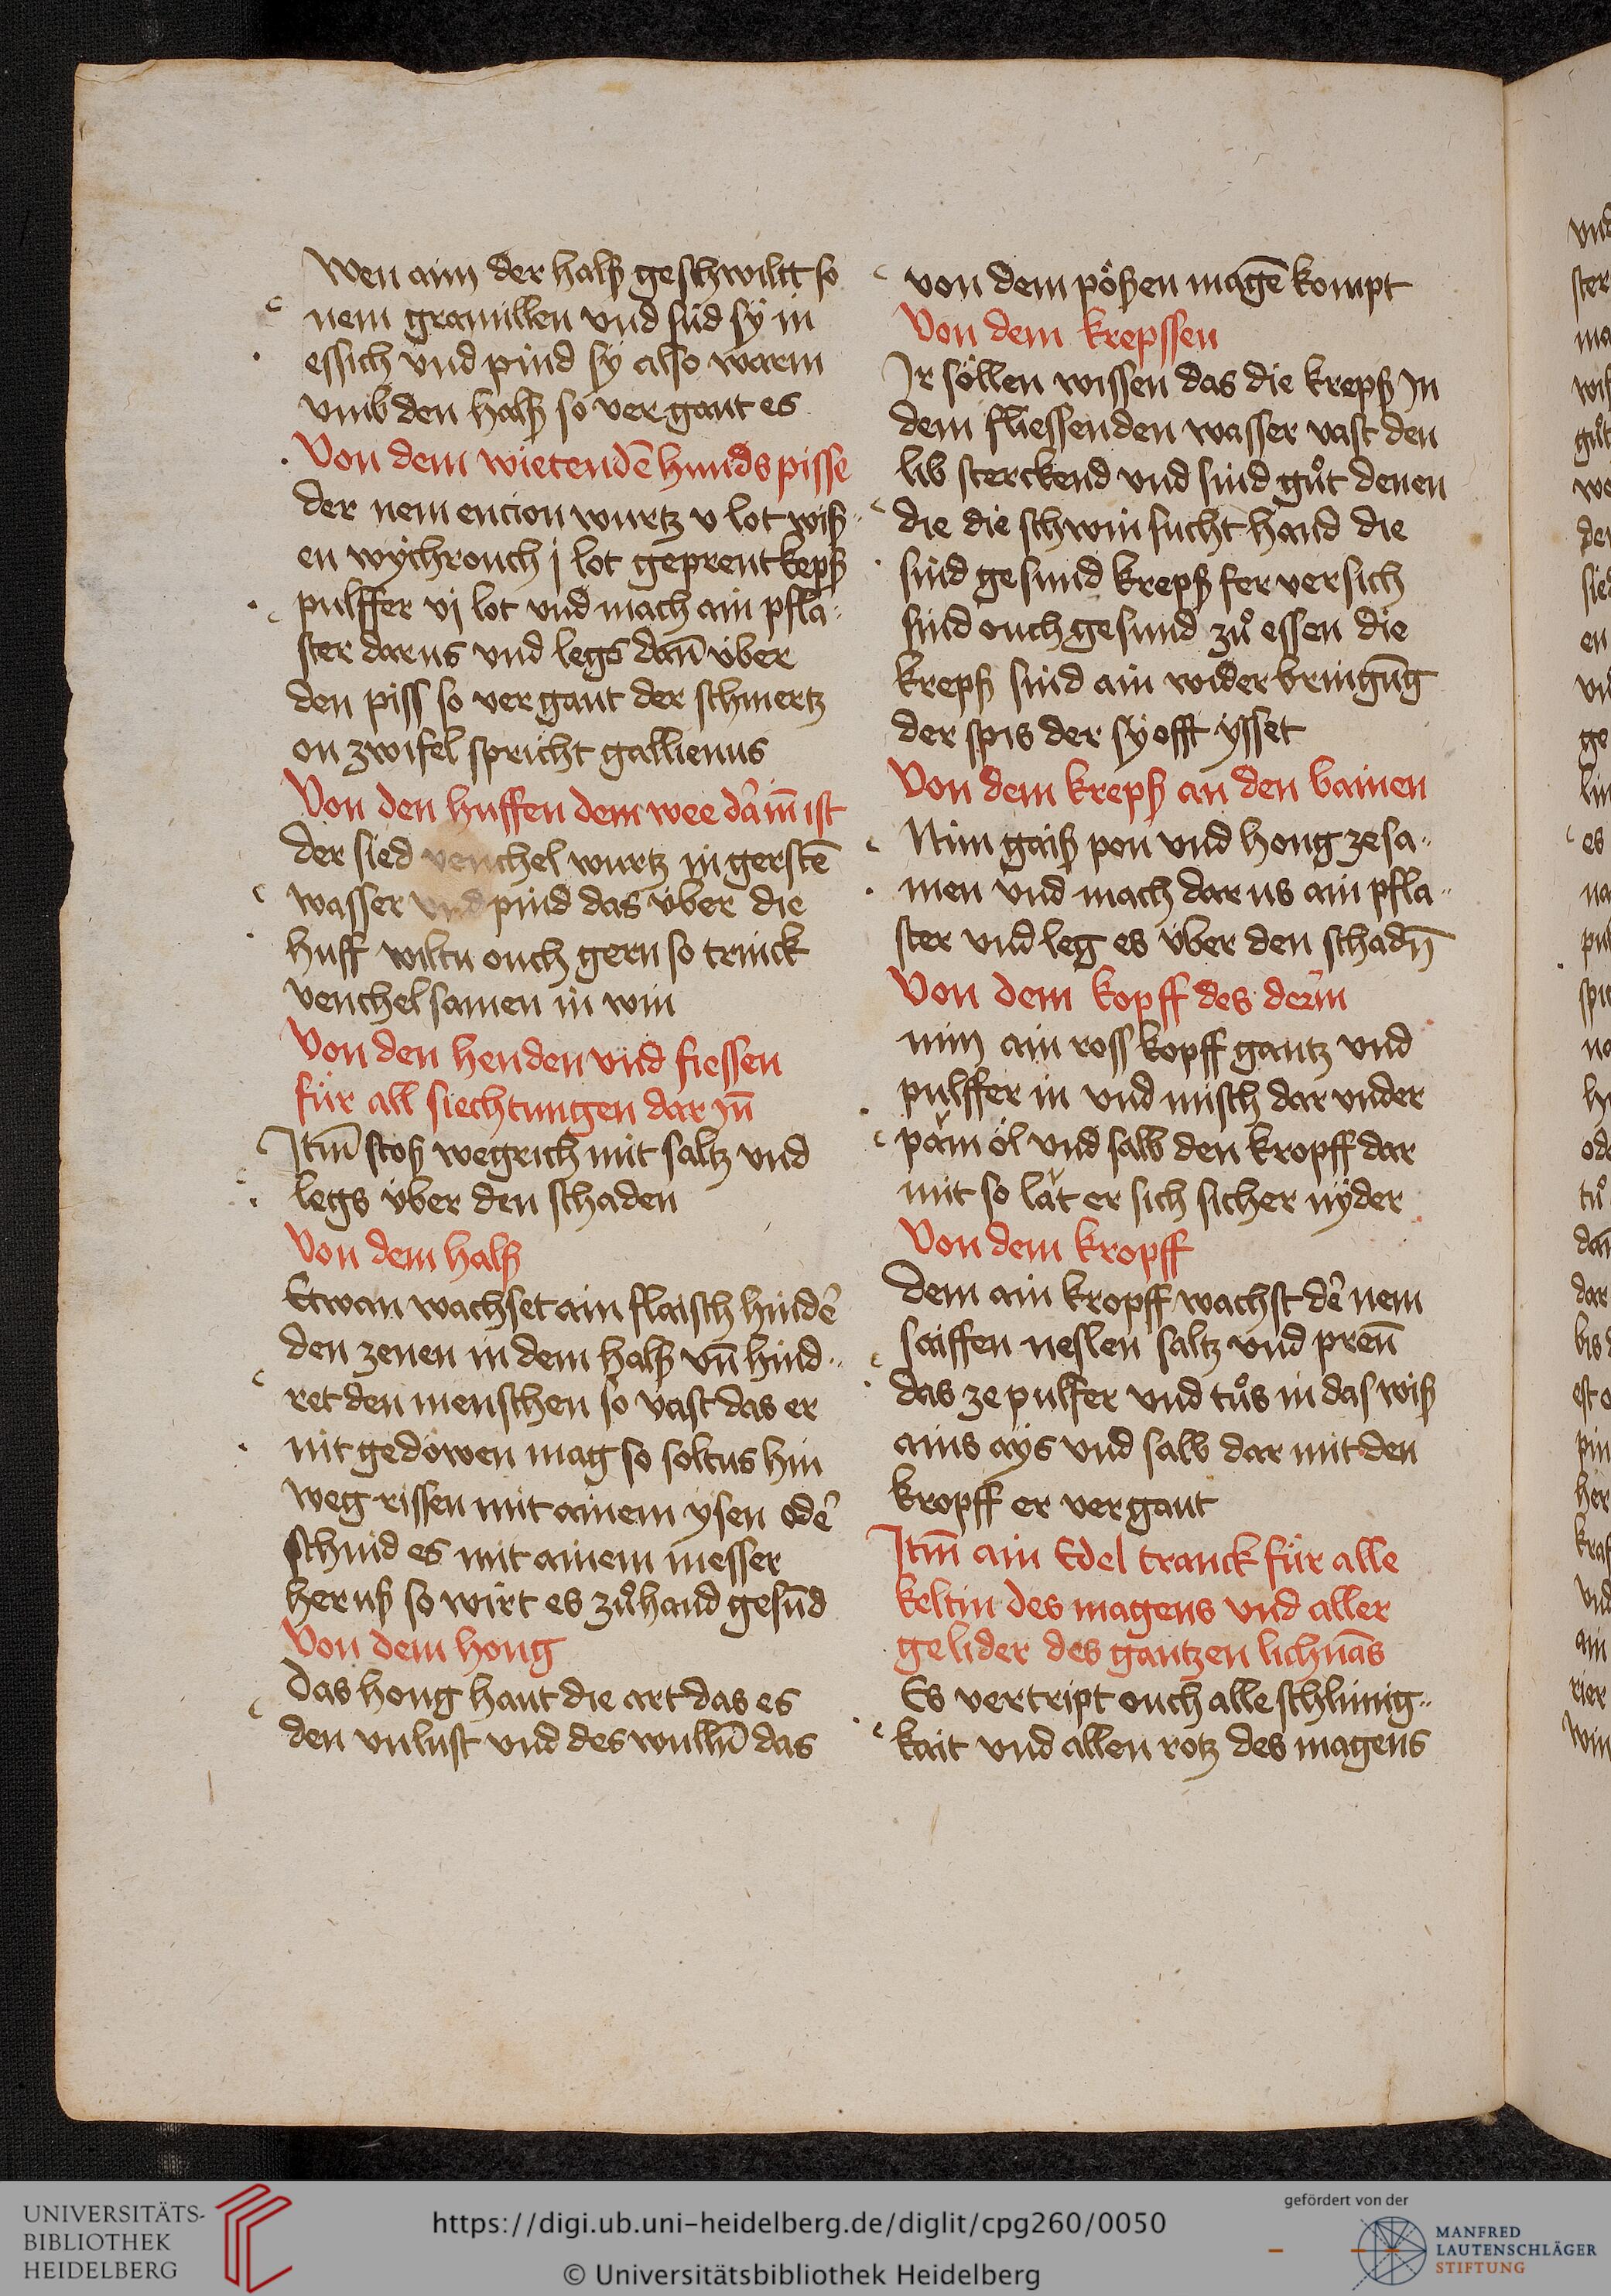 Wen aim der halß geschwiltt so
nem gramillen vnd süd sÿ in
essich vnd pind sÿ also warm
vmb den halß so vergaut es
Von dem wietendē hunds pisse
der nem encion wurtz v lot wiß„
en wÿchrouch j lot geprent kepß
pulffer vj lot vnd mach ain pfla„
ster darus vnd legs dan̄ über
den piss so vergaut der schmertz
on zwifel spricht gallienus
Von den huffen dem wee dar̄in ist
der sied venchel wurtz in gerstē
wasser vnd pind das über die
huff wiltu ouch gern so trinck
venchel samen in win
Von den henden vnd fiessen
für all siechtungen dar yn̄
Itm̄ stoß wegrich mit saltz vnd
legs über den schaden
Von dem halß
Etwan wachset ain flaisch hinder̄
den zenen in dem halß vn̄ hind„
ret den menschen so vast das er
nit gedöwen mag so soltus hin
weg rissen mit ainem ysen oder̄
schnid es mit ainem messer
her uß so wirt es zuͦhand gesūd
Von dem hong
Das hong haut die art das es
den vnlust vnd des wulln̄ das
von dem pößen magē kompt
Von dem krepssen
Ir söllen wissen das die krepß In
dem fliessenden wasser vast den
lib sterckend vnd sind guͦt denen
die die schwinsucht hand die
sind gesund krepß fer versich
sind ouch gesund zuͦ essen die
krepß sind ain widerbringūg
der spis der sÿ offt ysset
Von dem krepß an den bainen
Nim gaiß pon vnd hong zesa„
men vnd mach dar us ain pfla„
ster vnd leg es über den schadn̄
Von dem kopff des derm
nim ain ross kopff gantz vnd
pulffer in vnd misch dar vnder
päm öl vnd salb den kropff dar
mit so lät er sich sicher nÿder
Von dem kropff
Dem ain kropff wachst der̄ nem
saiffen neslen saltz vnd pren̄
das ze pulfer vnd tuͦs in das wiß
ains aÿs vnd salb dar mit den
kropff er vergaut
Itm̄ ain Edel tranck für alle
keltin des magens vnd aller
gelider des gantzen lichnās
Es vertript ouch alle schlimig„
kait vnd allen rotz des magens
vnd
ster
ma
wis
guͦt
we
der
sied
en
vn
ge
lin
es
na
pul
spi
na
hy
ode
tuͦ
dan̄
dar
bis d
est o
pin
her
kraf
vnd
ain
rier
win
UNIVERSITÄTS-
BIBLIOTHEK
HEIDELBERG
https://digi.ub.uni-heidelberg.de/diglit/cpg260/0050
© Universitätsbibliothek Heidelberg
gefördert von der
MANFRED
LAUTENSCHLÄGER
STIFTUNG